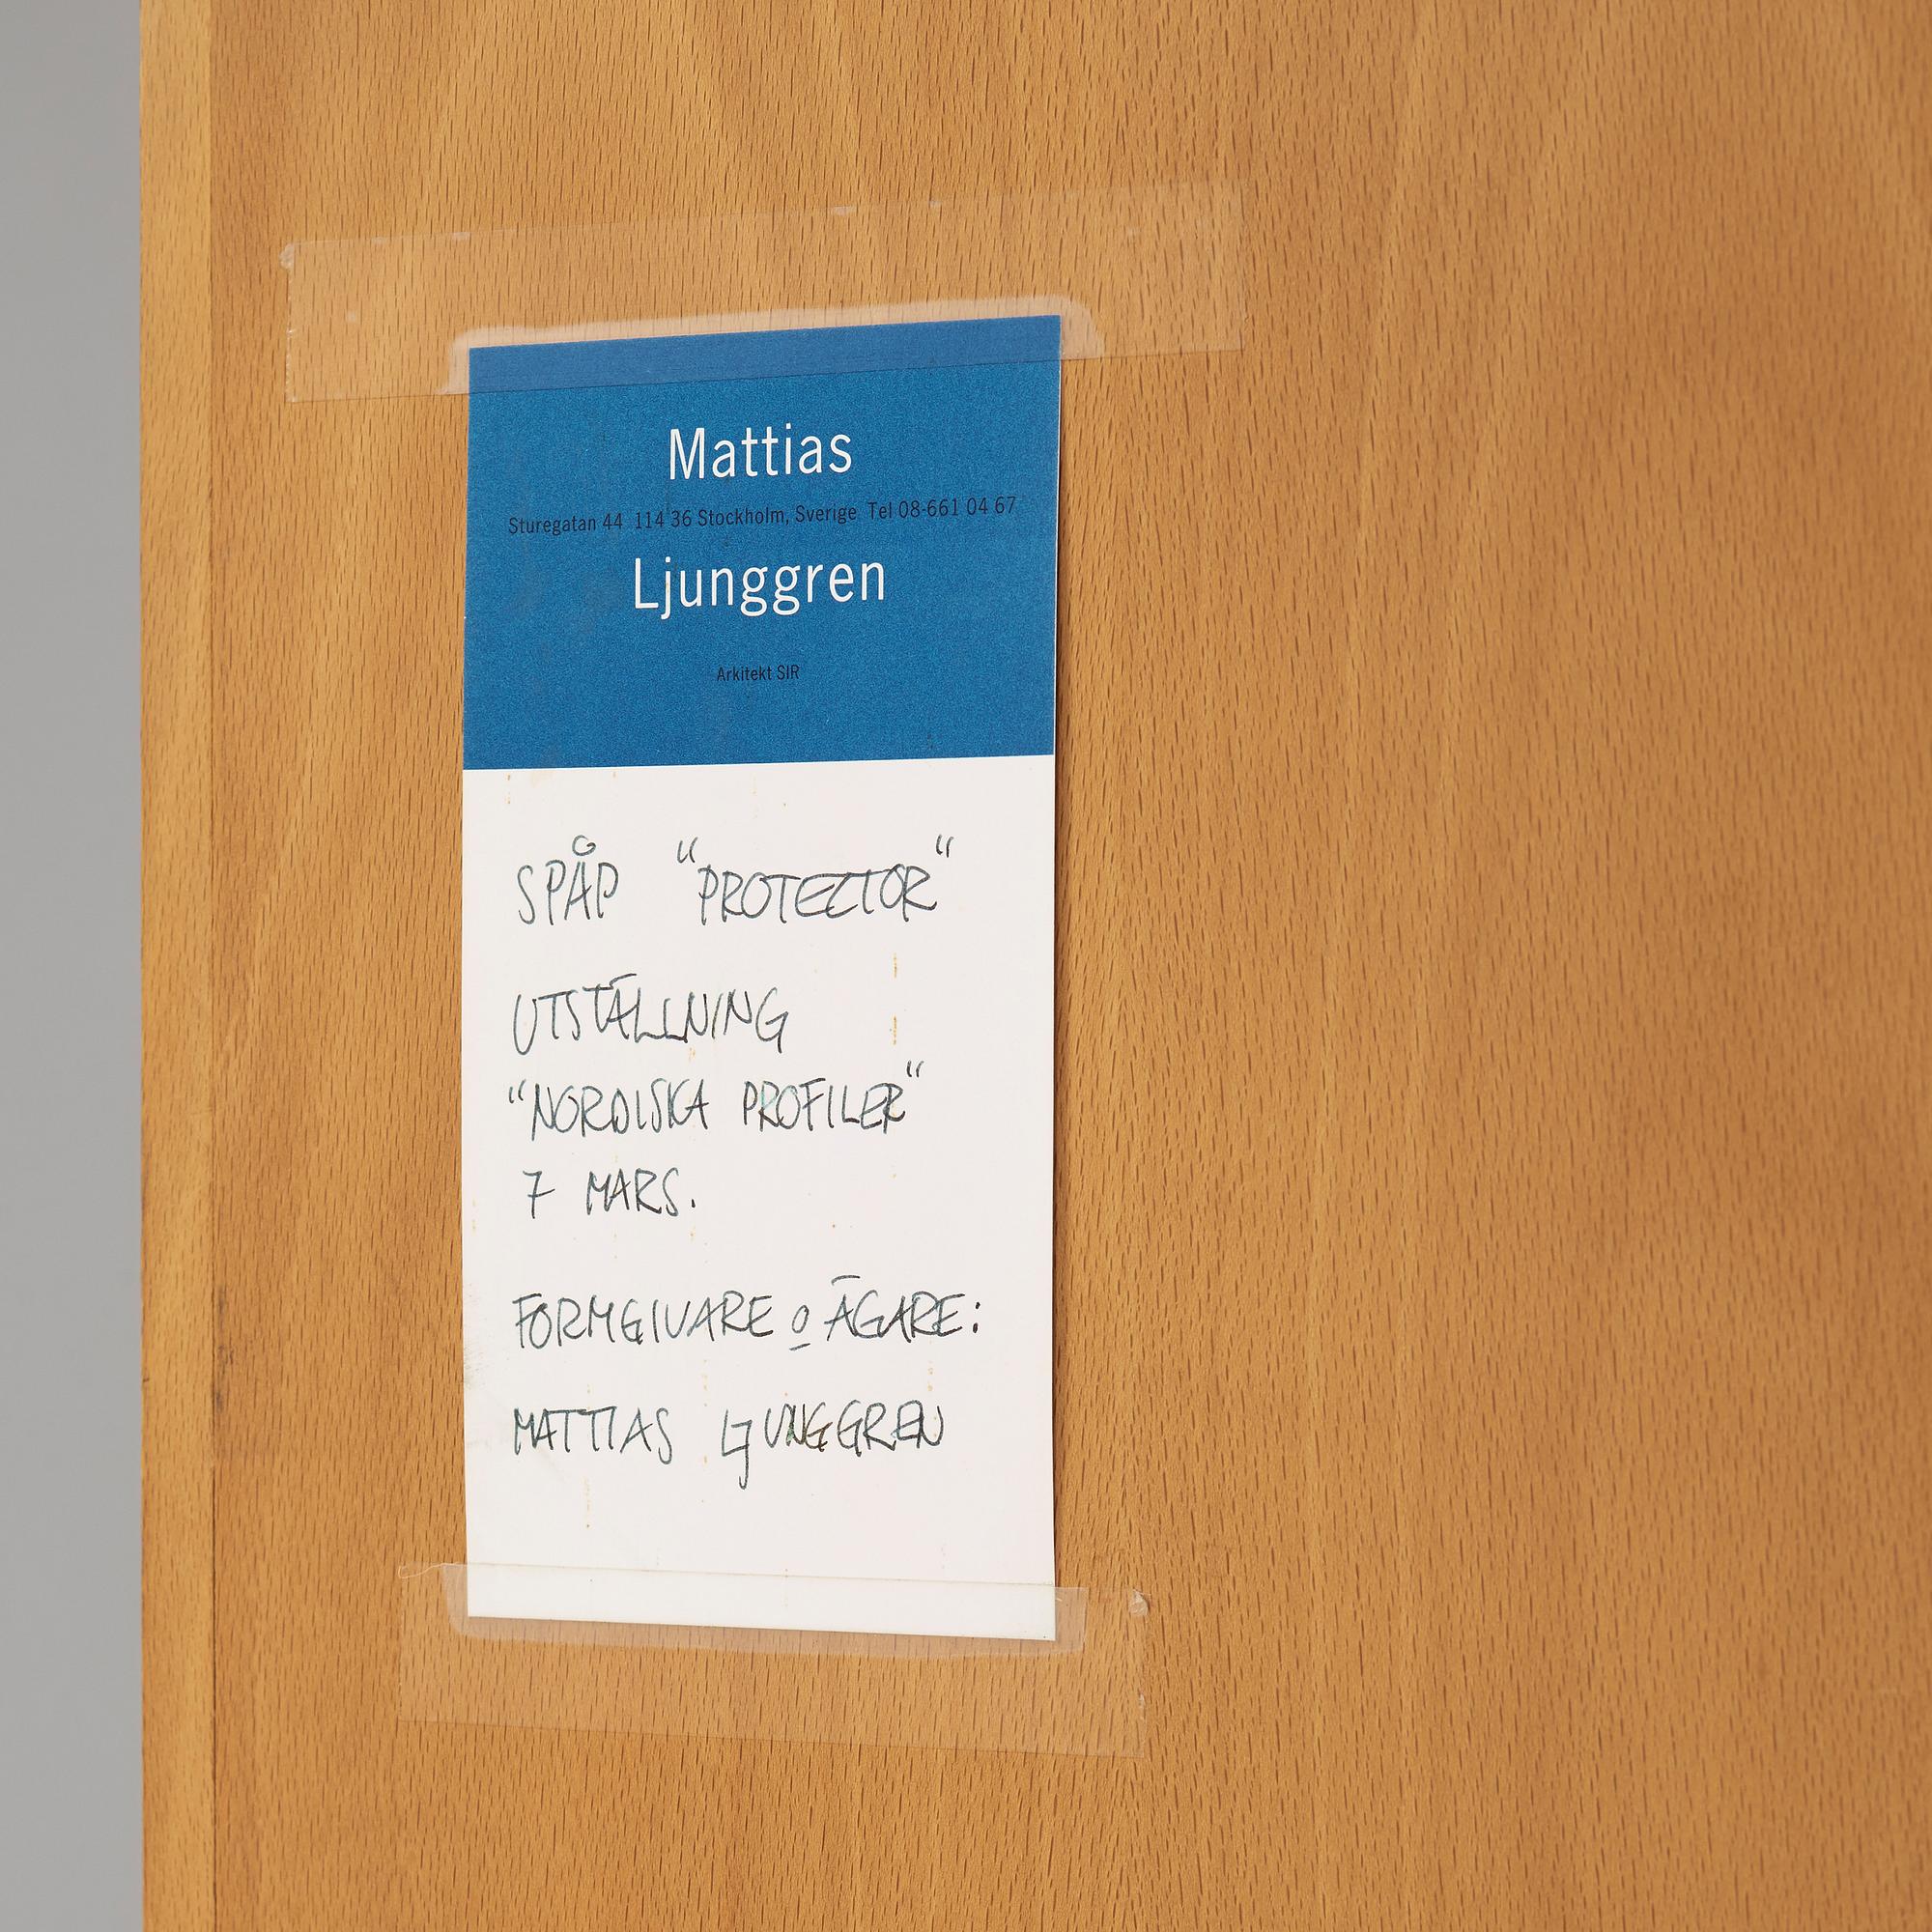 Mattias
Sturegatan 44 114 36 Stockholm, Sverige Tel 08-661 04 67
Ljunggren
Arkitekt SIR
SPÅP "PROTECTOR"
UTSTÄLLNING
"NORDISKA PROFILER"
7 MARS.
FORMGIVARE o ÄGARE:
MATTIAS LJUNGGREN